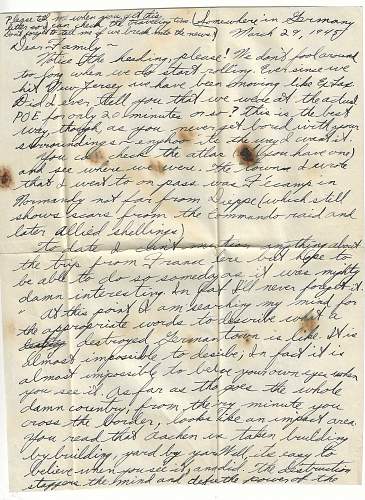 Please tell me when you get this
letter so I can check the traveling time (Somewhere in Germany
Don't forget to tell me if we break into the news! March 29, 1945
Dear Family ~
Notice the heading, please! We don't fool around
too long when we do start rolling. Ever since we
hit New Jersey we have been moving like Ex Lax
Did I ever tell you that we were at the actual
POE for only 20 minutes or so? This is the best
way though, as you never get bored with your
surroundings & anyhow its the way I want it.
You can check the atlas (if you have one)
and see where we were. The town I wrote
that I went to on pass was Fecamp in
Normandy not far from Dieppe (which still
shows scars from the commando raid and
later Allied shellings)
To date I can't mention anything about
the trip from France here but hope to
be able to do so someday as it was mighty
damn interesting. In fact I'll never forget it.
At this point I am searching my mind for
the appropriate words to describe what a
destroyed German town is like. It is
almost impossible to desribe, in fact it is
almost impossible to believe your own eyes when
you see it. As far as tha goes the whole
damn country, from the very minute you
cross the border, looks like an impact area.
You read that Aachen was taken building
by building, yard by yard. Well its easy to
believe when you see it, and did. The destruction
staggers the mind and defies the powers of the